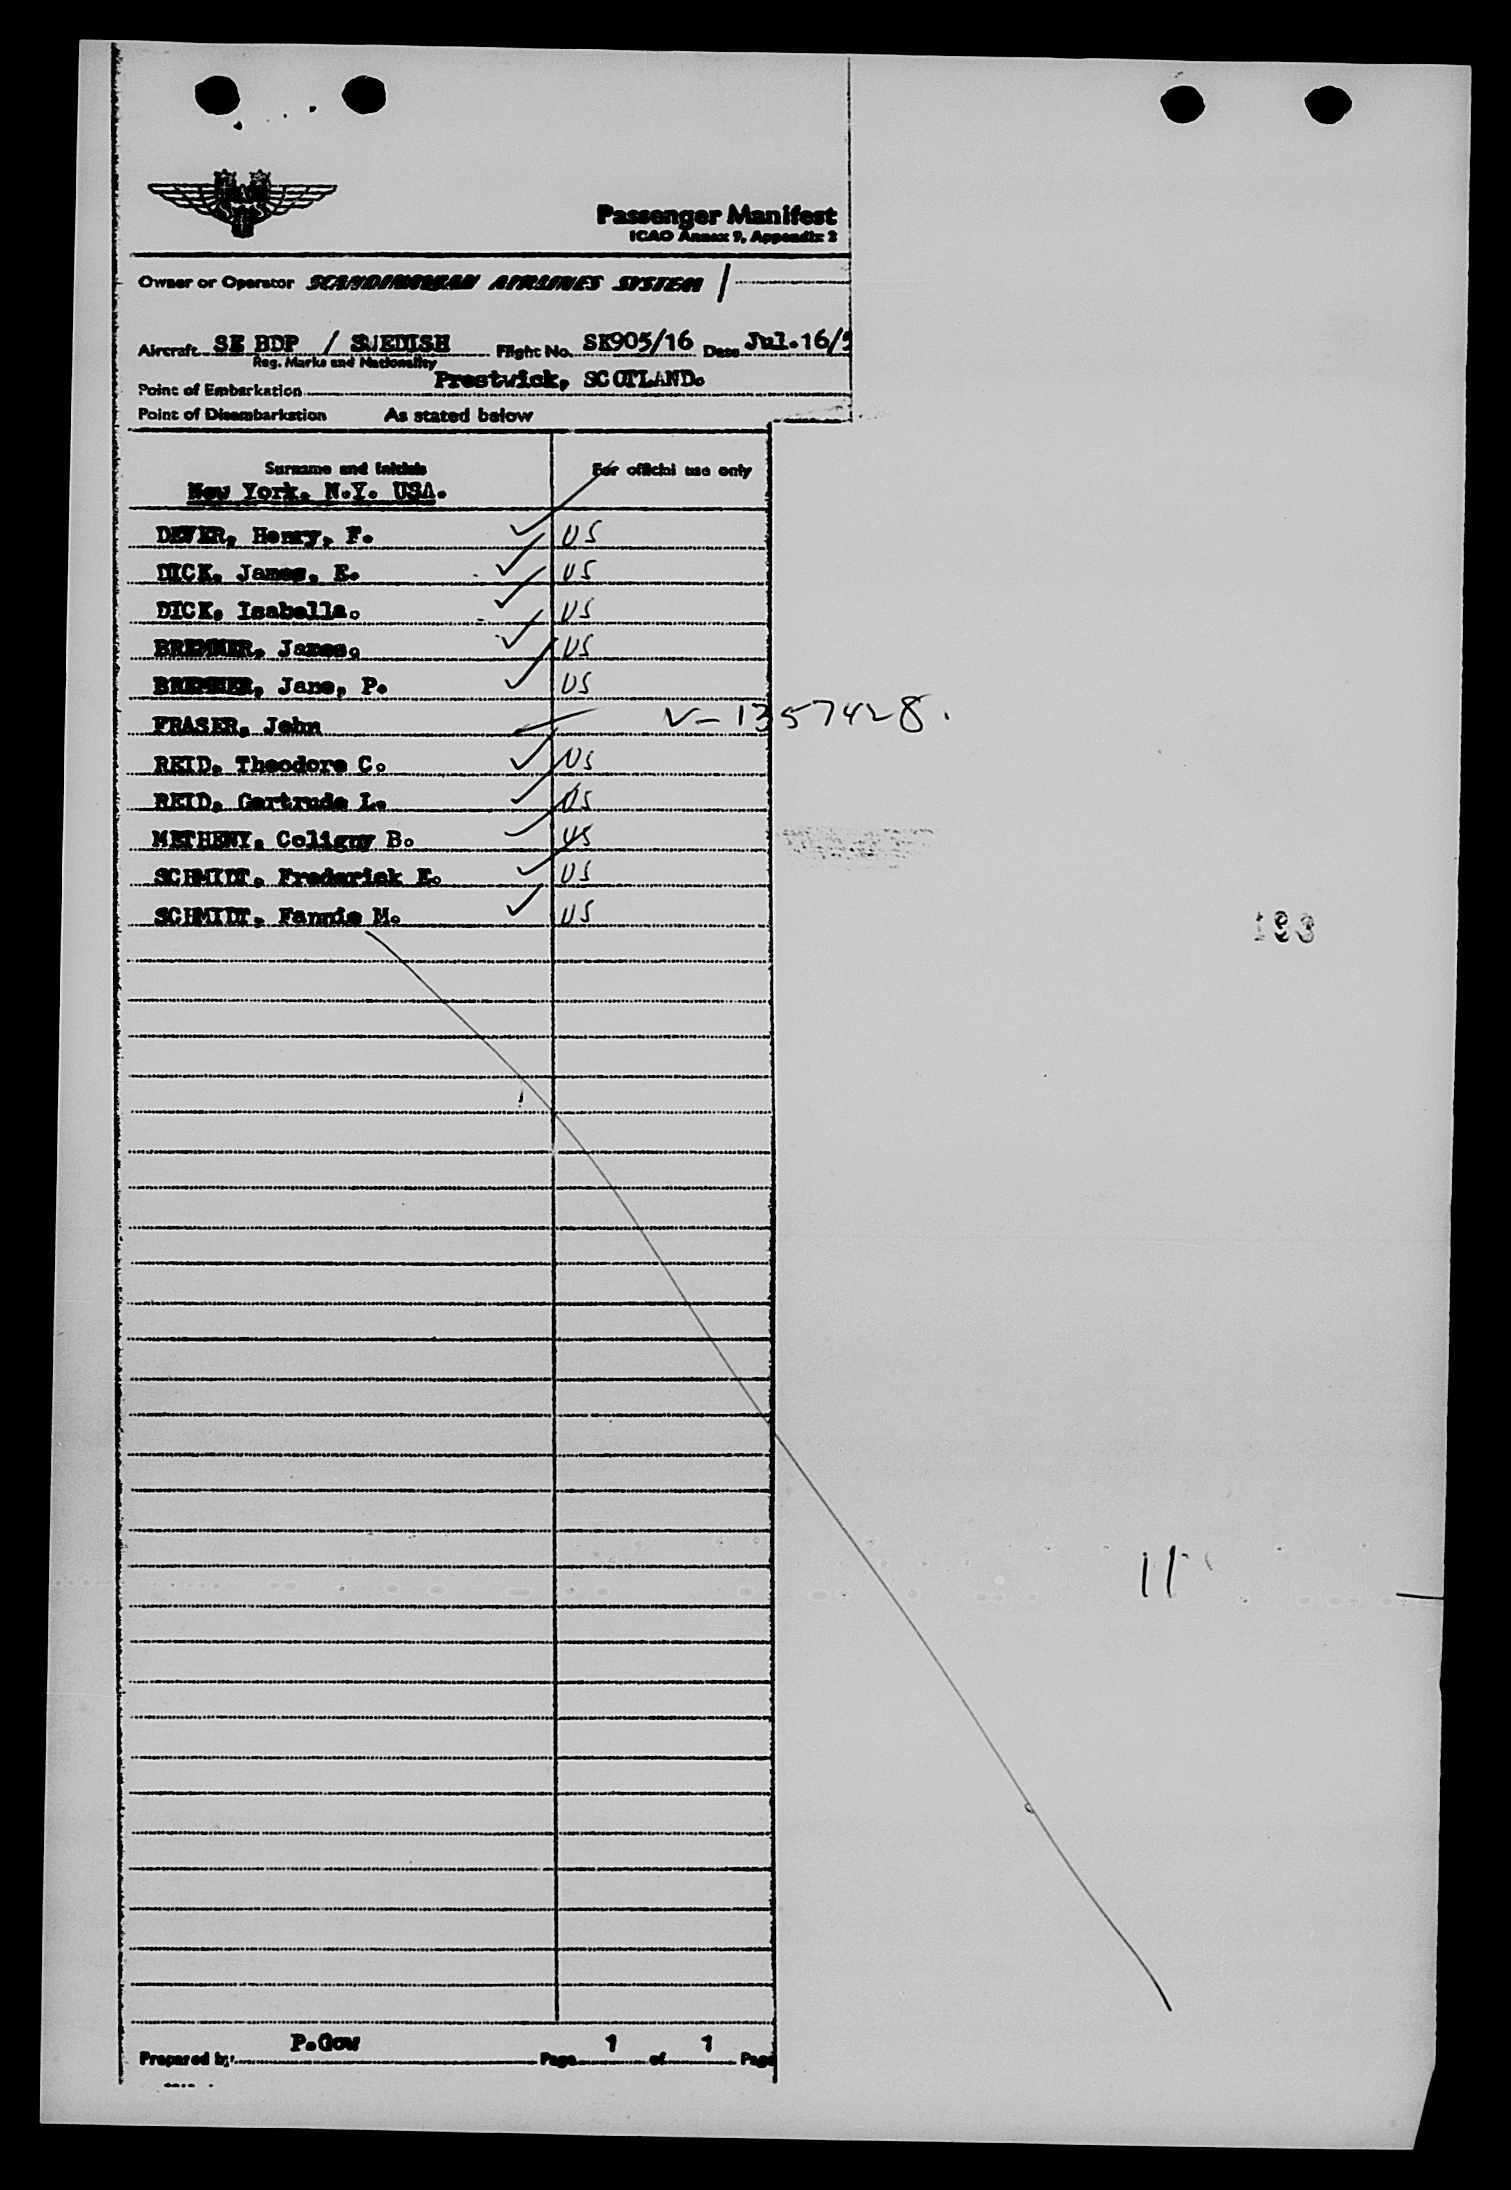 Passenger Manifest
ICAO Annex 9, Appendix 2
Owner or Operator SCANDINAVIAN AIRLINES SYSTEM
Aircraft SE BDP / SWEDISH Flight No. SK905/16 Date Jul.16/5
Reg. Marks and Nationality
Point of Embarkation Prestwick, SCOTLAND.
Point of Disembarkation As stated below
Surname and Initials For official use only
New York. N.Y. USA.
DEVER, Henry, F. US
DICK, James, E. US
DICK, Isabella. US
BREMNER, James. US
BREMNER, Jane, P. US
FRASER, John V-1357428.
REID, Theodore C. US
REID, Gertrude L. US
METHENY, Coligny B. US
SCHMIDT, Frederick E. US
SCHMIDT, Fannie M. US
193
11
Prepared by P.Gow Page 1 of 1 Page